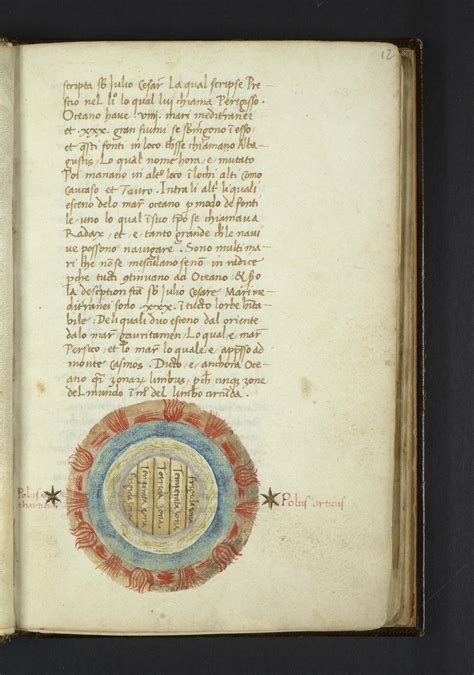 12
scripta sb Julio Cesar. La qual scripse Pre
scio nel lo lo qual lui chiama Perigisso.
Oceano have viiij. mari meditranei
et .xxx. gran fiumi se sbmgono i esso,
et qsti fonti in loco se chiamano Alba
gustis; Lo qual nome hora, e, mutato
Poi manano in alto loco i lochi alti como
caucaso et Tauro. Intra li altri la quali
esceno de lo mar oceano p modo de fonti
le, uno lo qual i suo se chiamava
Radax, et, e, tanto grande che le navi
ve possono navigare. Sono multi ma
ri che no se mesculano seno in radice
pche tucti qtinuano ad Oceano: &
la desciption sb Julio Cesare. Mari me
ditranei sono .xxx. i tucto lorbe hita
bile: De li quali duo esceno dal oriente
da lo mar Lo qual, e, mar
Persico, et lo mar lo quale, e, appsso ad
monte casmos. Dicto, e, anchora Oce
ano zonarum limbus, pch cinq zone
del mundo del limbo circuda.
Polus
Frigida zona
Temperata zona
Torrida zona
Temperata zona
Frigida zona
Polus articus